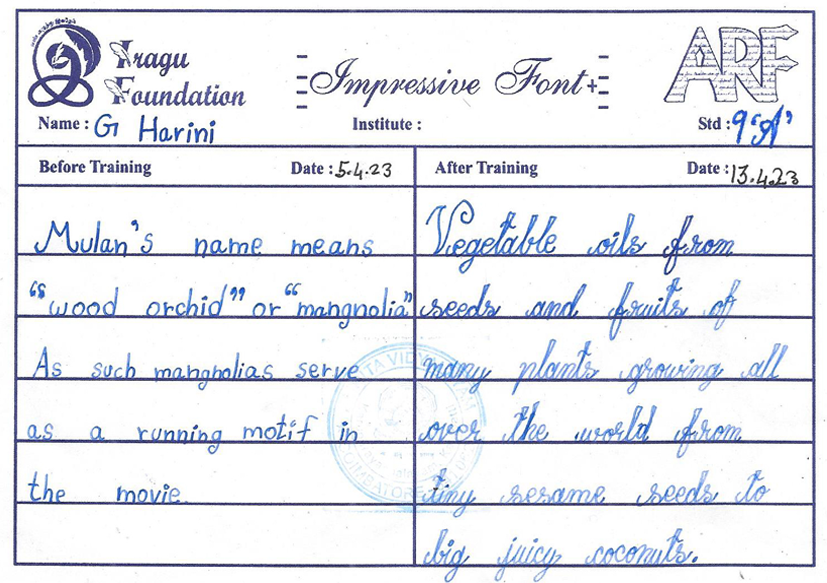 Iragu
Foundation
Impressive Font
ARF
Name : G Harini
Institute :
Std : 9 'A'
Before Training
Date : 5.4.23
After Training
Date : 13.4.23
Mulan's name means
"wood orchid" or "mangnolia"
As such mangnolias serve
as a running motif in
the movie.
Vegetable oils from
seeds and fruits of
many plants growing all
over the world from
tiny sesame seeds to
big juicy coconuts.